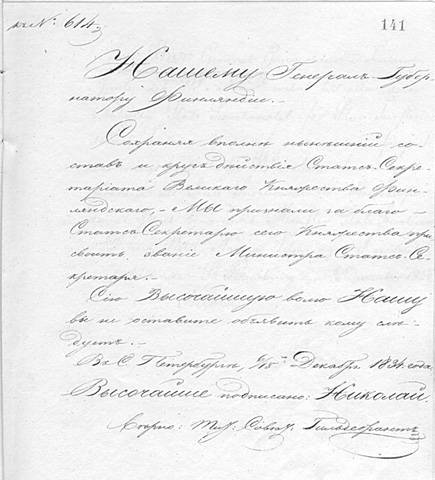 къ №: 614.
141
Нашему Генералъ-Губер-
натору Финляндіи.-
Сохраняя вполнѣ нынѣшній со-
ставъ и кругъ дѣйствія Статсъ-Секре-
таріата Великаго Княжества Фин-
ляндскаго,- Мы признали за благо -
Статсъ-Секретарю сего Княжества при-
своить званіе Министра Статсъ-Се-
кретаря.-
Сію Высочайшую волю Нашу
вы не оставите объявить кому слѣ-
дуетъ.-
Въ С. Петербургѣ, 6/15 Декабря 1834 года.
Высочайше подписано: Николай.
Тит: Совѣт.